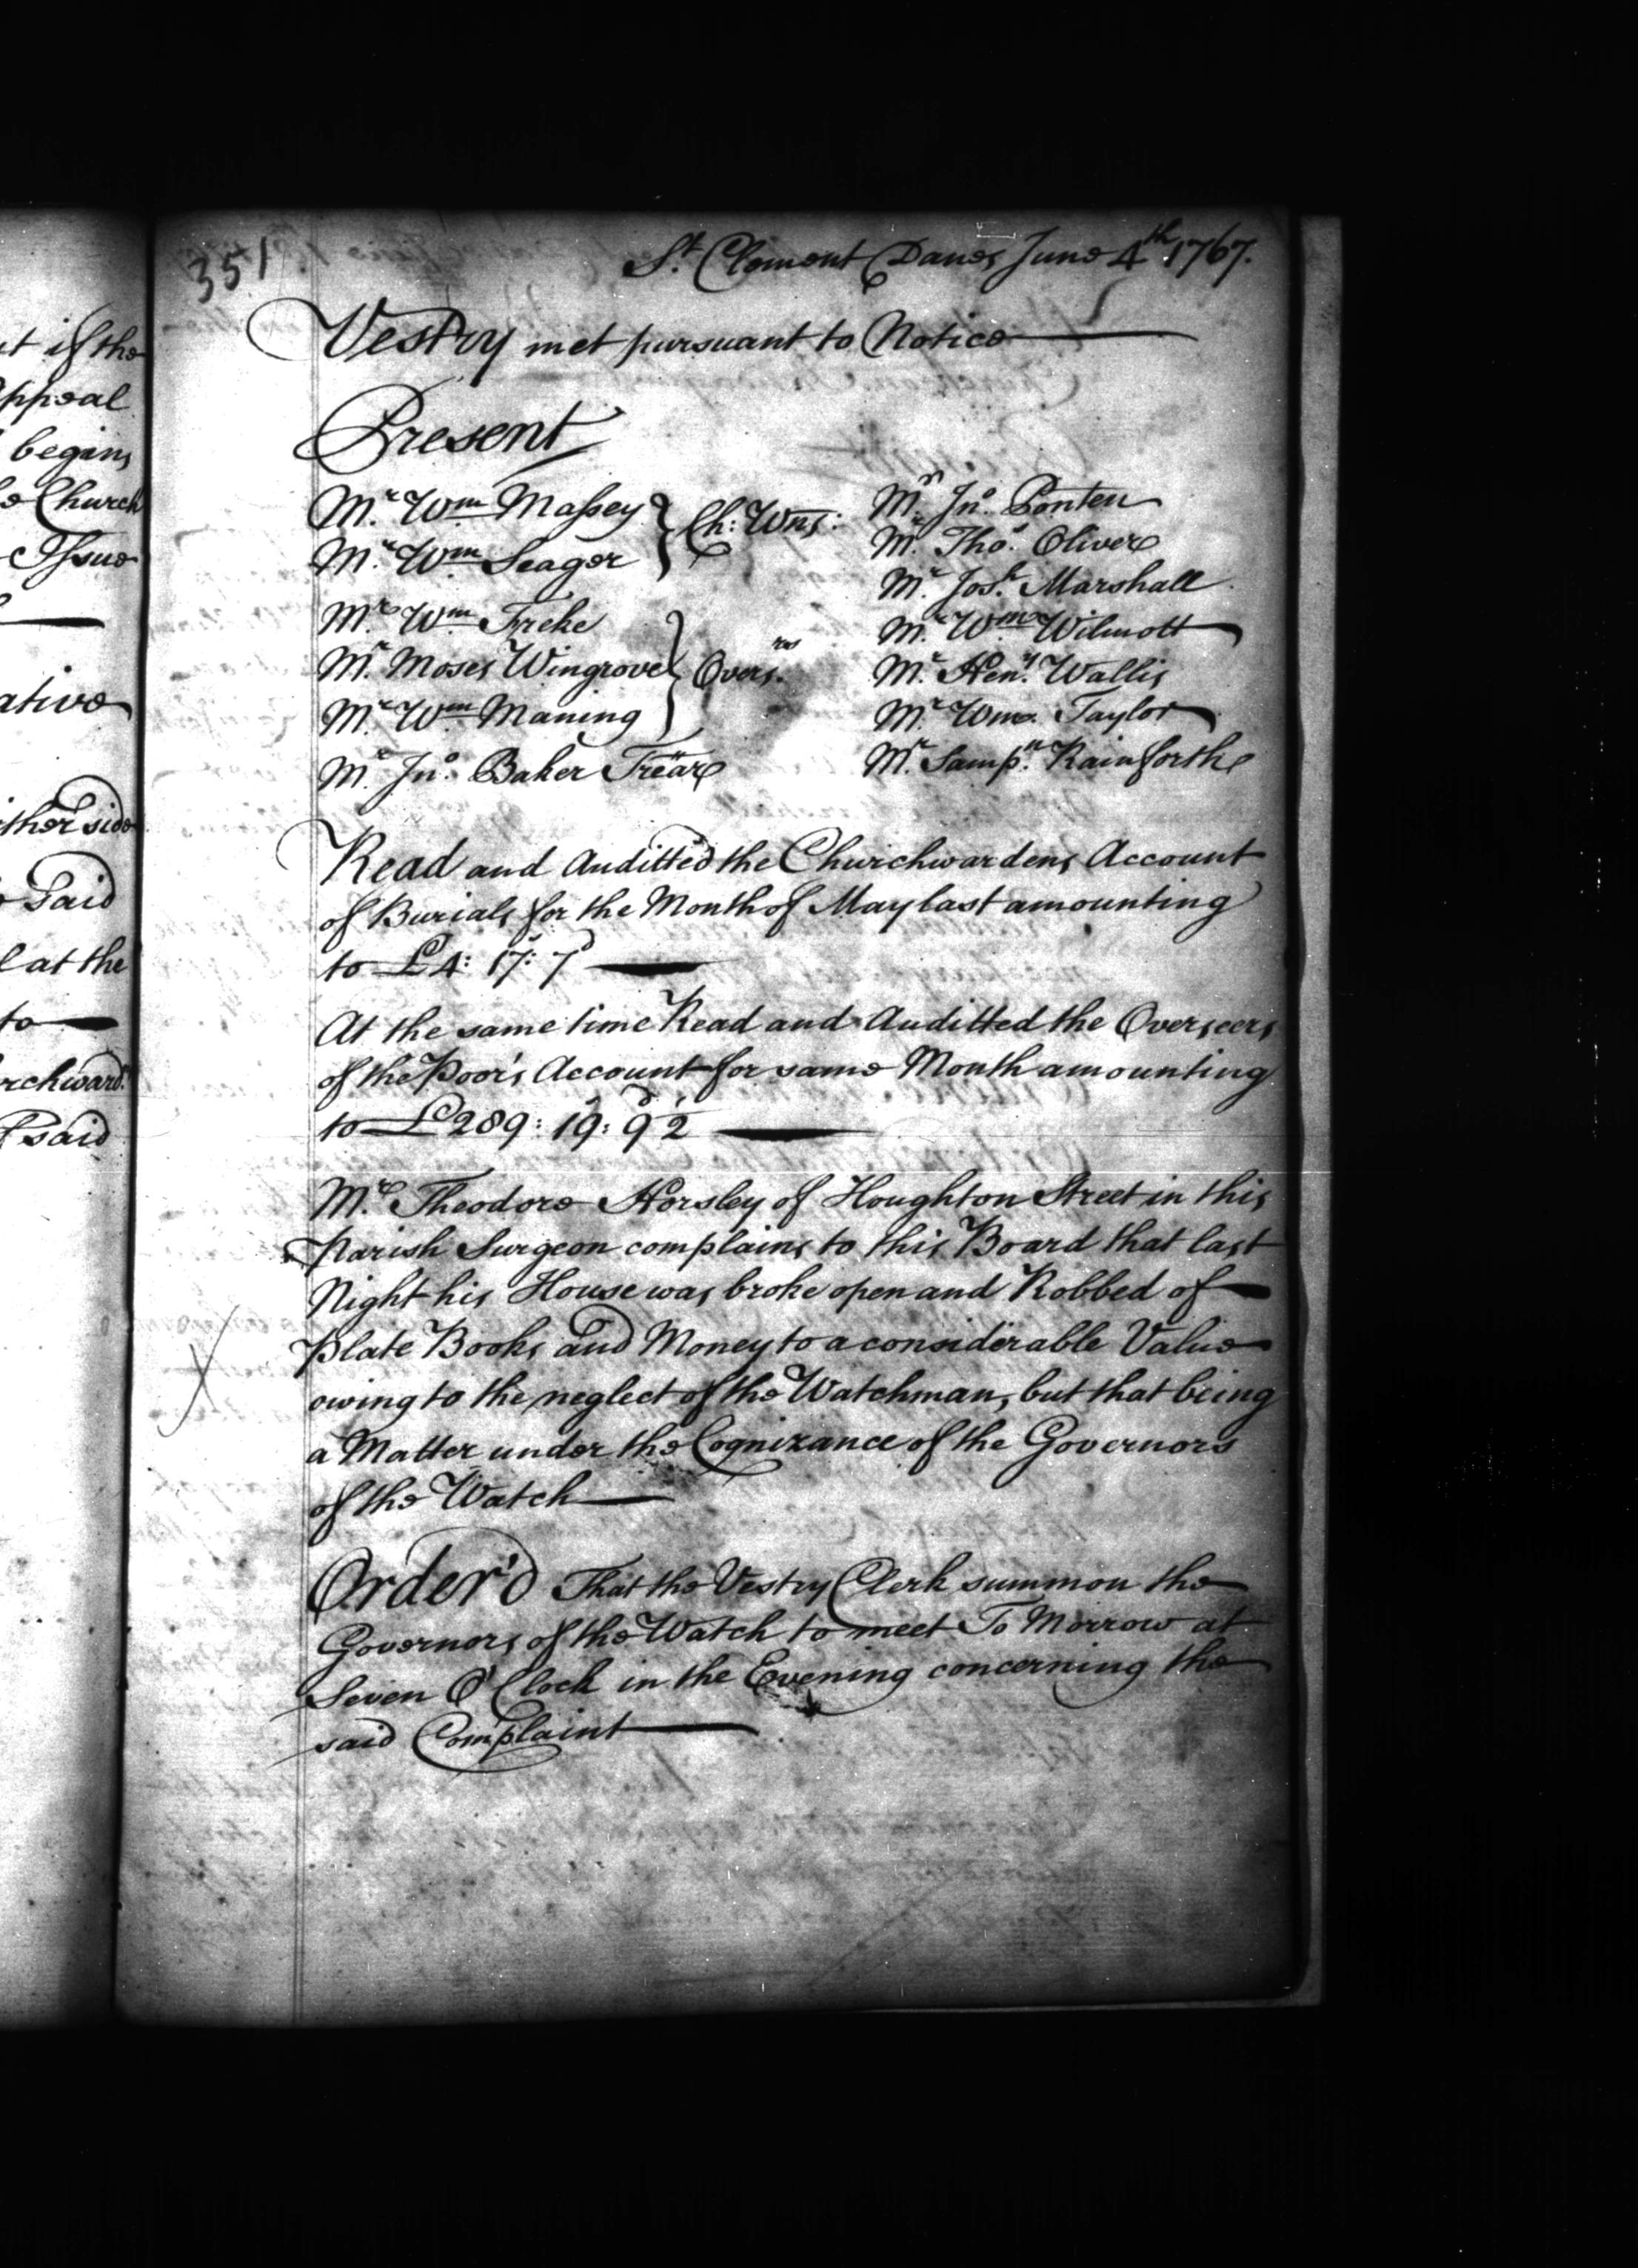 t if the
ppeal
begins
e Church
Issue
ative
ther side
said
l at the
to
rchward.
said
351
St. Clement Danes June 4th 1767.
Vestry met pursuant to Notice
Present
Mr. Wm. Massey
Mr. Wm. Seager
Ch: Wns:
Mr. Wm. Freke
Mr. Moses Wingrove
Mr. Wm. Maning
Overs.rs
Mr. Jno. Baker Trëar
Mr. Jno. Ponten
Mr. Thos. Oliver
Mr. Josh. Marshall
Mr. Wm. Wilmott
Mr. Heny. Wallis
Mr. Wm. Taylor
Mr. Sampn. Rainforth
Read and Auditted the Churchwardens Account
of Burials for the Month of May last amounting
to £4: 17s: 7d
At the same time Read and Auditted the Overseers
of the Poor's Account for same Month amounting
to £289: 19s: 9d 1/2
Mr. Theodore Horsley of Houghton Street in this
Parish Surgeon complains to this Board that last
Night his House was broke open and Robbed of
Plate Books and Money to a considerable Value
owing to the neglect of the Watchman, but that being
a Matter under the Cognizance of the Governors
of the Watch
Order'd That the Vestry Clerk summon the
Governors of the Watch to meet To Morrow at
Seven O'Clock in the Evening concerning the
said Complaint